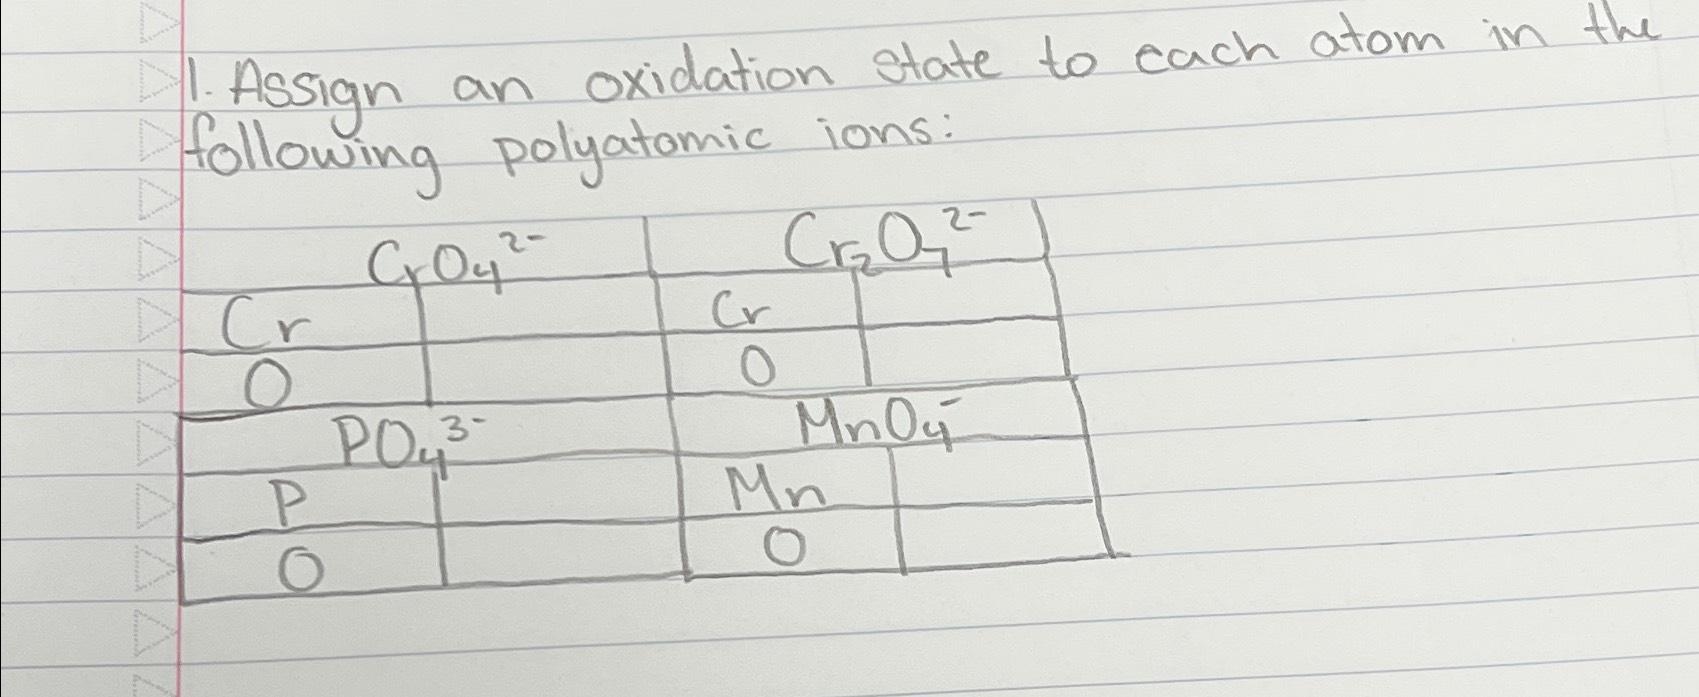 1. Assign an oxidation state to each atom in the
following polyatomic ions:
CrO₄²⁻ Cr₂O₇²⁻
Cr Cr
O O
PO₄³⁻ MnO₄⁻
P Mn
O O